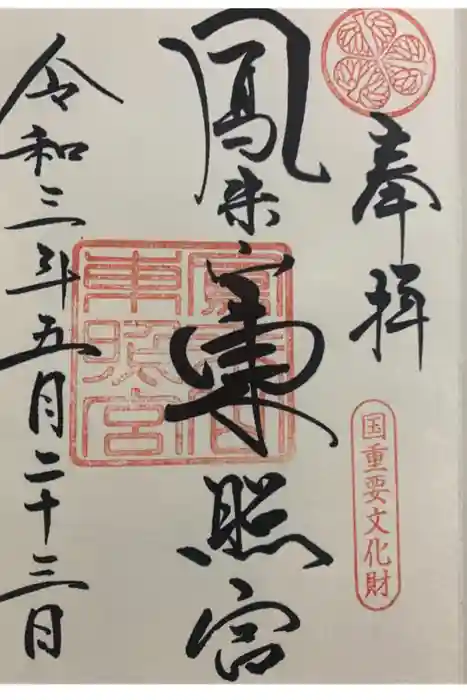 奉拝
国重要文化財
鳳来山東照宮
東照宮
令和三年五月二十三日